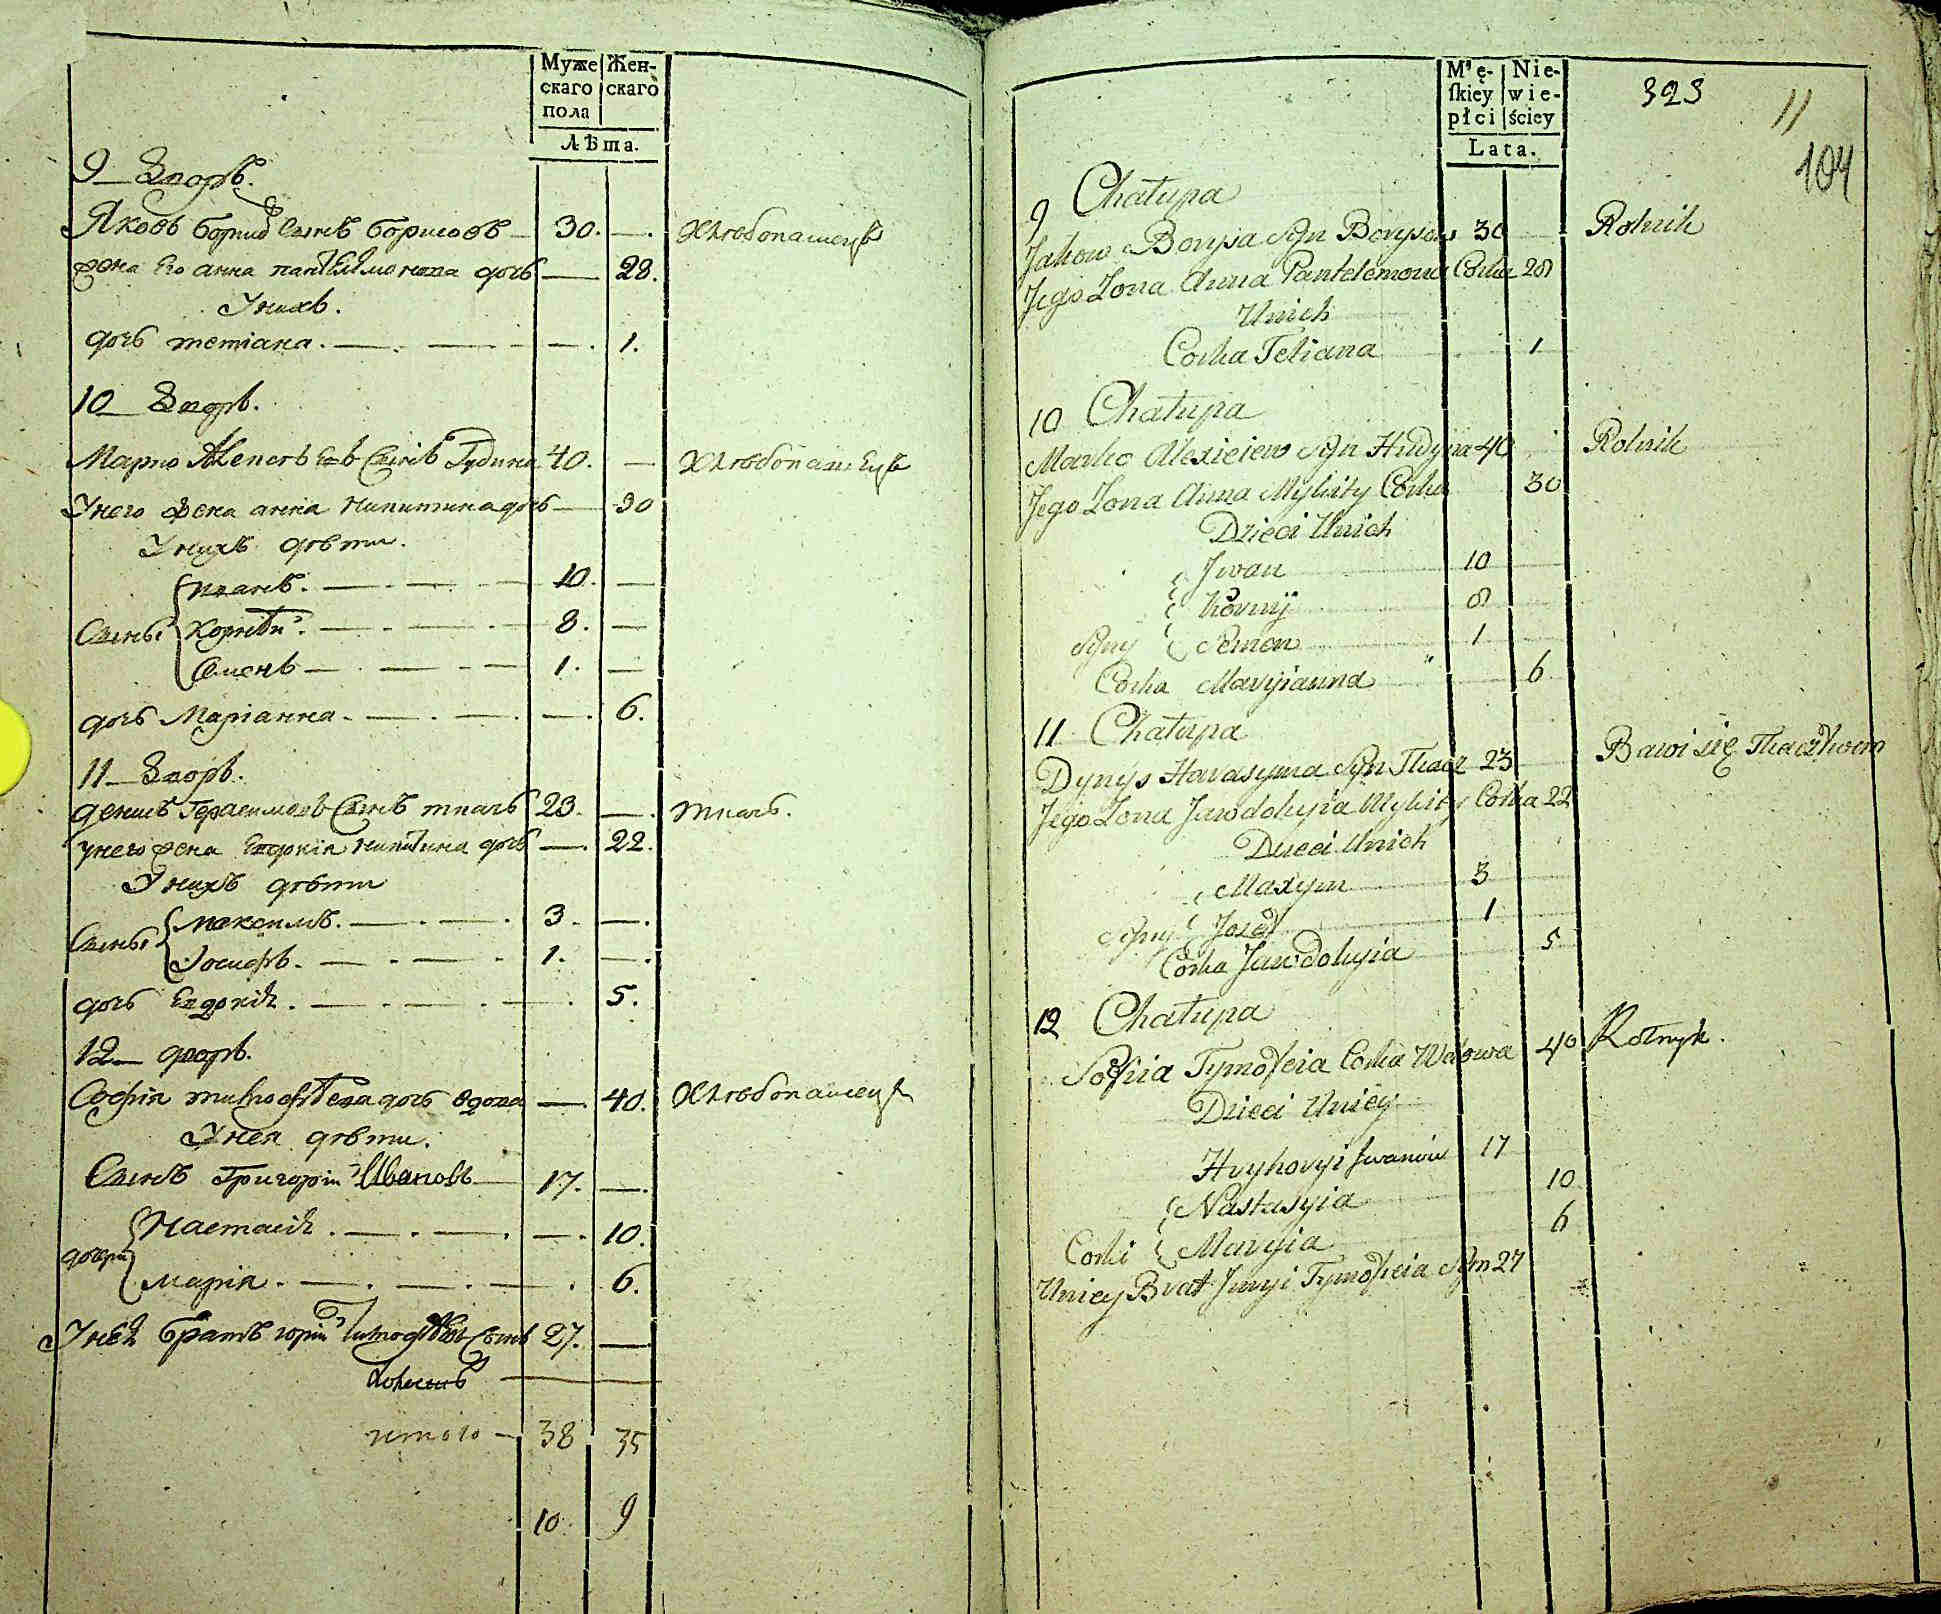 Муже
скаго
пола
Жен-
скаго
Лѣта.
9 Дворъ.
Яковъ Борисо Сынъ Борисовъ 30. —. Хлѣбопашецъ
жена Его анна пантелѣимонова дочь — 28.
У нихъ.
дочь тетiана. — 1.
10 Дворъ.
Марко Алексѣевъ Сынъ Гудима 40. — Хлѣбопашецъ
У него жена анна никитина дочь — 30
У нихъ дѣти.
Сыны
иванъ. — 10. —
Корнѣй. — 8. —
Семенъ — 1. —
дочь Марiанна. — 6.
11 Дворъ.
денисъ Герасимовъ Сынъ ткачъ 23. —. ткачъ.
у него жена Евдокiя никитина дочь — 22.
У нихъ дѣти
Сыны
максимъ. — 3. —.
Iосифъ. — 1. —.
дочь Евдокiя. — 5.
12 дворъ.
Софiя тимофѣева дочь вдова — 40. Хлѣбопашецъ
У нея дѣти.
Сынъ Григорiй Ивановъ 17. —.
дочери
Настасiя. — 10.
марiя. — 6.
У нея братъ юрiй тимофѣевъ Сынъ 27. —
итого — 38 35
10 9
Męskiey
płci
Niewieściey
Lata.
323
11
104
9 Chałupa
Jakow Borysa Syn Borysow 30 Rolnik
Jego Zona Anna Pantelemona Corka 28
Unich
Corka Tetiana 1
10 Chałupa
Marko Alexieiew Syn Hudyma 40 Rolnik
Jego Zona Anna Mykity Corka 30
Dzieci Unich
Jwan 10
Korniy 8
Syny Semen 1
Corka Maryianna 6
11 Chałupa
Dynys Harasyma Syn Tkacz 23 Bawi się Tkactwem
Jego Zona Jawdokyia Mykity Corka 22
Dzieci Unich
Maxym 3
Syny Josef 1
Corka Jawdokyia 5
12 Chałupa
Sofiia Tymofieia Corka Wdowa 40 Rolnyk.
Dzieci Uniey
Hryhoryi Jwanow 17
Nastasyia 10
Corki Maryia 6
Uniey Brat Juryi Tymofieia Syn 27